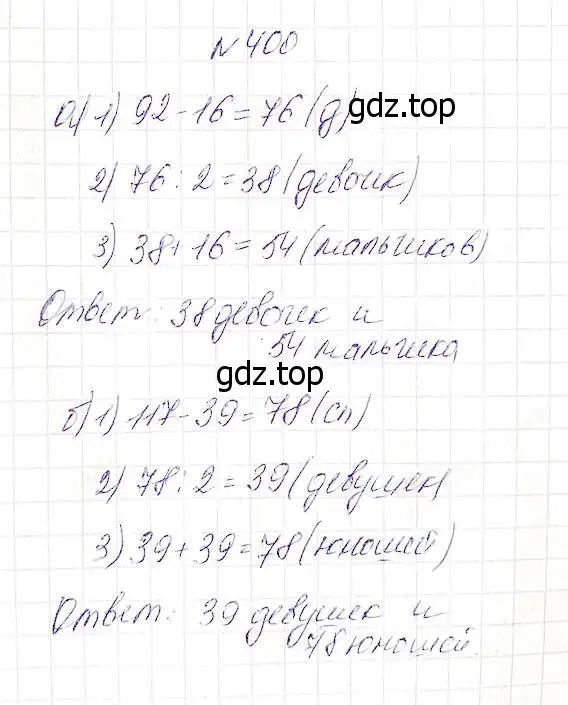 №400
а) 1) 92-16=76(д)
gdz.top
2) 76:2=38(девочк)
3) 38+16=54(мальчиков)
Ответ: 38 девочек и
54 мальчика
gdz.top
б) 1) 117-39=78(сп)
2) 78:2=39(девушек)
3) 39+39=78(юношей)
Ответ: 39 девушек и
78 юношей.